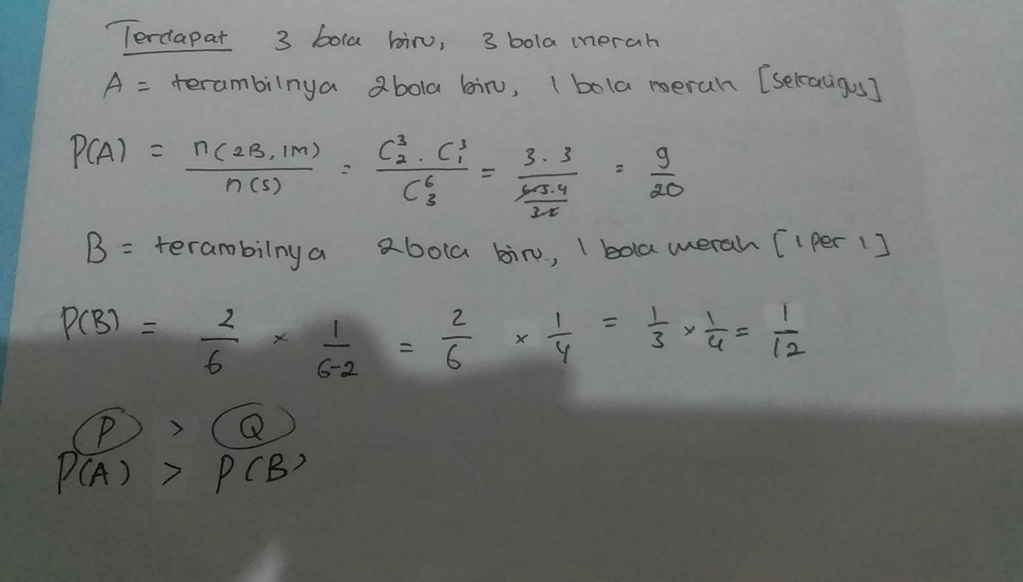 Terdapat 3 bola biru, 3 bola merah
A = terambilnya 2 bola biru, 1 bola merah [sekaligus]
P(A) = n(2B, 1M) / n(S) = C³₂ . C³₁ / C⁶₃ = 3 . 3 / (6.5.4 / 3.2) = 9/20
B = terambilnya 2 bola biru, 1 bola merah [1 per 1]
P(B) = 2/6 × 1/6-2 = 2/6 × 1/4 = 1/3 × 1/4 = 1/12
P > Q
P(A) > P(B)